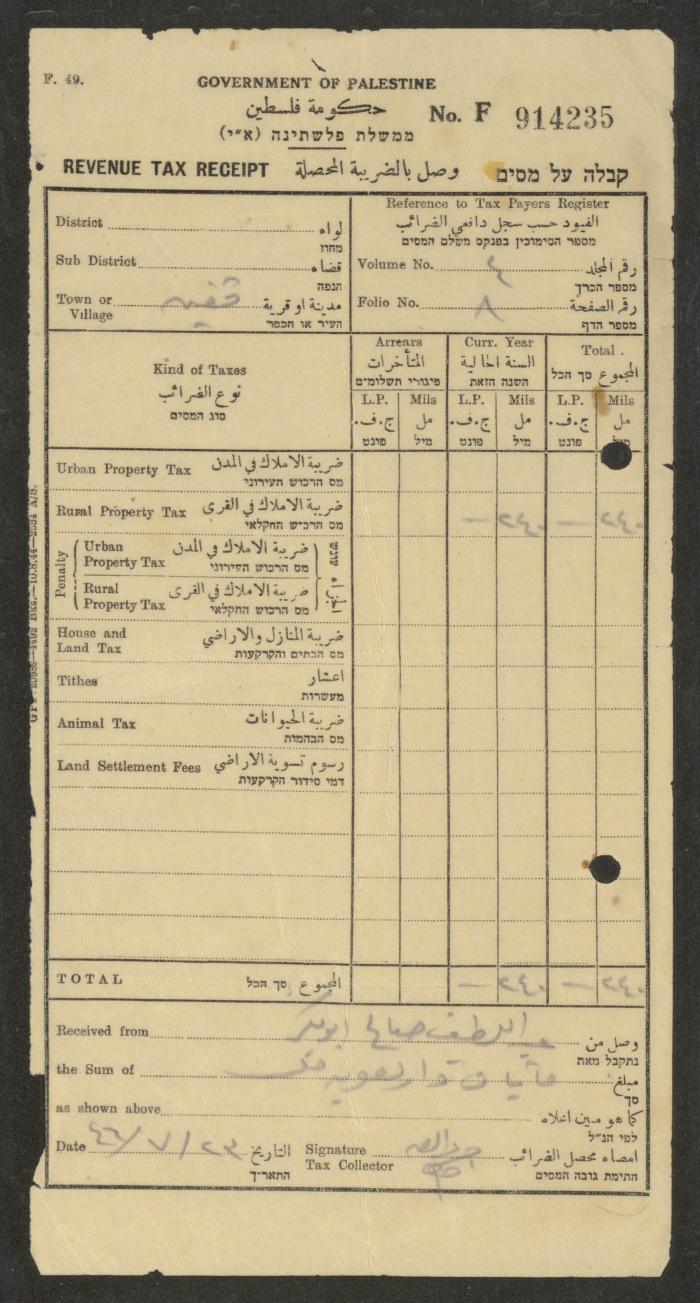 F. 49.
GOVERNMENT OF PALESTINE
حكومة فلسطين
ממשלת פלשתינה (א״י)
No. F 914235
REVENUE TAX RECEIPT وصل بالضريبة المحصلة קבלה על מסים
District لواء
מחוז
Sub District قضاء
הנפה
Town or Village مدينة او قرية
העיר או הכפר
Reference to Tax Payers Register
القيود حسب سجل دافعي الضرائب
מספר הסימוכין בפנקס משלם המסים
Volume No. ٤ رقم المجلد
מספר הכרך
Folio No. ٨ رقم الصفحة
מספר הדף
Kind of Taxes
نوع الضرائب
סוג המסים
Arrears Curr. Year Total
المتأخرات السنة الحالية المجموع סך הכל
פיגורי תשלומים השנה הזאת
L.P. Mils L.P. Mils L.P. Mils
ج.ف. مل ج.ف. مل ج.ف. مل
פונט מיל פונט מיל פונט מיל
Urban Property Tax ضريبة الاملاك في المدن
מס הרכוש העירוני
Rural Property Tax ضريبة الاملاك في القرى — ٢٤٠ — ٢٤٠
מס הרכוש החקלאי
Penalty
Urban Property Tax ضريبة الاملاك في المدن
מס הרכוש העירוני
Rural Property Tax ضريبة الاملاك في القرى
מס הרכוש החקלאי
עונש
House and Land Tax ضريبة المنازل والاراضي
מס הבתים והקרקעות
Tithes اعشار
מעשרות
Animal Tax ضريبة الحيوانات
מס הבהמות
Land Settlement Fees رسوم تسوية الاراضي
דמי סידור הקרקעות
TOTAL סך הכל المجموع — ٢٤٠ — ٢٤٠
Received from وصل من
נתקבל מאת
the Sum of مبلغ
סך
as shown above كما هو مبين اعلاه
לפי הנ״ל
Date ٢٣/٧/٤٦ التاريخ
התאריך
Signature Tax Collector امضاء محصل الضرائب
חתימת גובה המסים